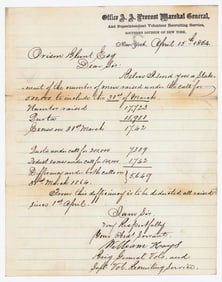 Office A. A. Provost Marshal General,
And Superintendent Volunteer Recruiting Service,
SOUTHERN DIVISION OF NEW YORK.
New-York, April 15th 1864.
Orison Blunt Esq
Dear Sir.
Below I send you a State-
ment of the number of men raised under the call for
500,000 to include the 31st of March
Number raised 17723
Quota
Excess on 31st March 1742
Quota under call for 200,000
Deduct excess under call for 500,000 1742
Difference under both calls on 5649
31st March 1864.
From this deficiency is to be deducted all raised
since 1st April.
I am Sir,
Very Respectfully
Your Obdt Servant
William Hays
Brig General Vols, and
Supt Vol. Recruiting Service.